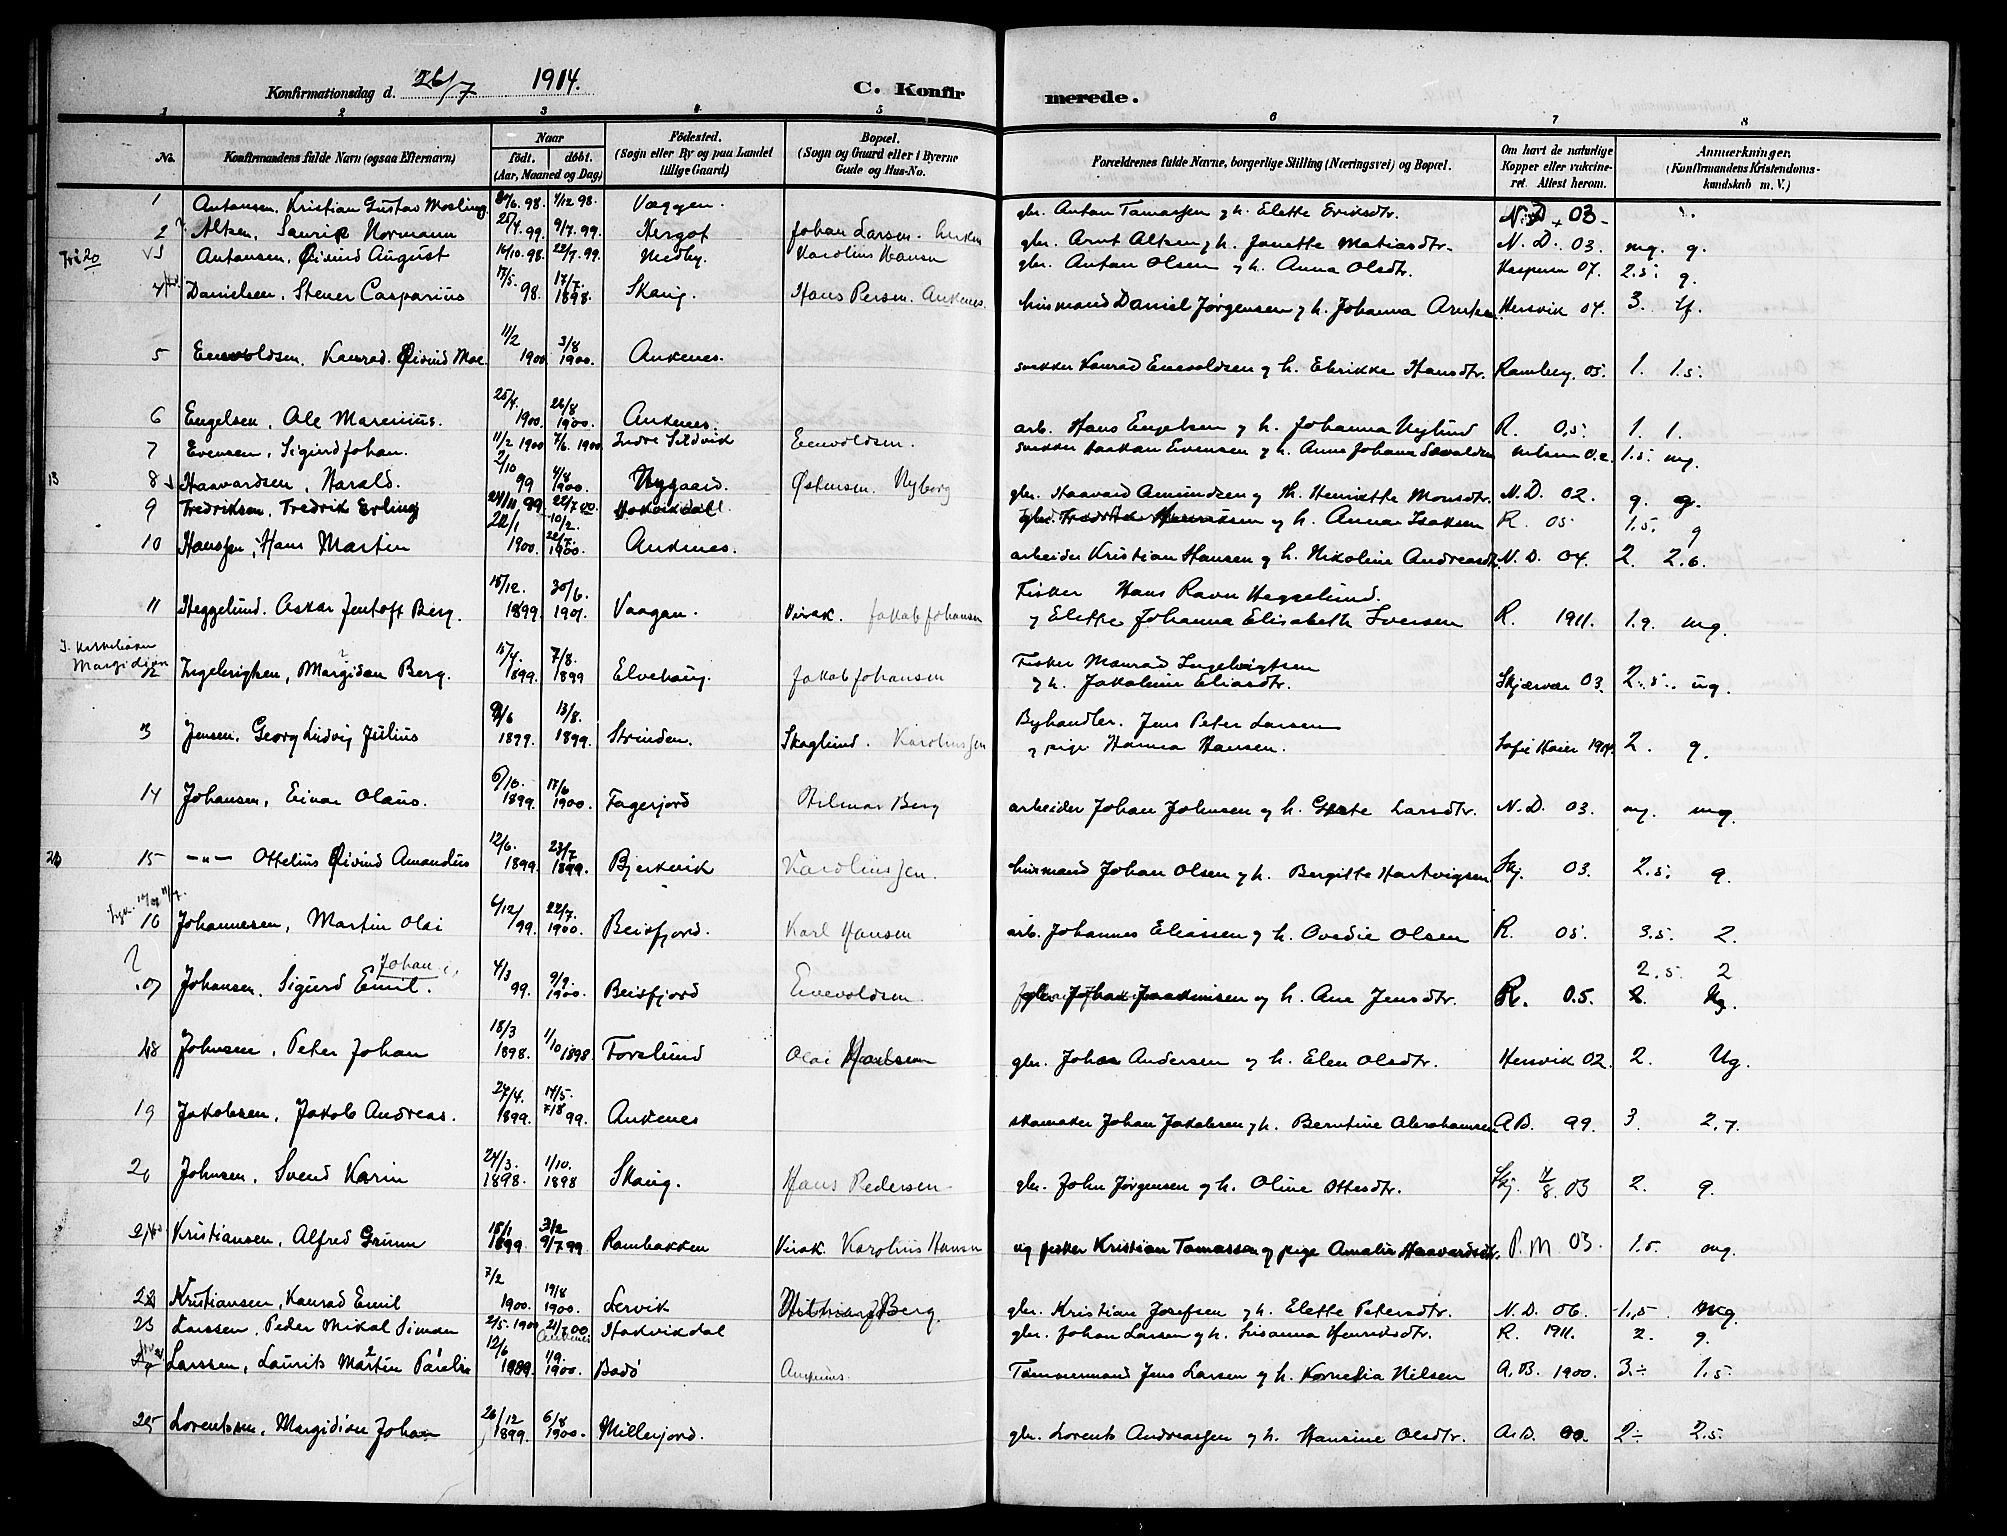 Konfirmationsdag d. 26/7 1914. C. Konfirmerede.
1 2 3 4 5 6 7 8
No. Konfirmandens fulde Navn (ogsaa Efternavn) Naar født. døbt. (Aar, Maaned og Dag) Fødested. (Sogn eller By og paa Landet tillige Gaard) Bopæl. (Sogn og Gaard eller i Byerne Gade og Hus-No. Forældrenes fulde Navne, borgerlige Stilling (Næringsvei) og Bopæl. Om havt de naturlige Kopper eller vaccineret. Attest herom. Anmærkninger. (Konfirmandens Kristendomskundskab m. V.)
1 Antonsen, Kristian Gustav Mosling 98. 4/12 98. Væggen. gbr. Anton Tomassen g h. Elette Eriksdtr. N.D. 03
2 Altsen, Normann 25/4 99. 9/7 99. Nergot Johan Larsen. gbr. Arnt Altsen g h. Janette Matiasdtr. N. D. 03. mg. g.
3 Antonsen, Øivind August 16/10. 98. 22/7. 99. Medby. Karolius Hansen gbr. Anton Olsen g h. Anna Olsdtr. 07. 2.5. g.
4 Danielsen, Stener Casparius 17/5. 98. 17/7. 1898. Skavig. Hans Persen. Ankenes. husmand Daniel Jørgensen g h. Johanna Hersvik 04. 3.
5 Enevoldsen, Konrad Øivind Moe 11/2 1900 3/8 1900. Ankenes. snekker Konrad Enevoldsen g h. Elrikke Hansdtr. Ramberg. 05. 1. 1.5.
6 Engelsen, Ole Marenius. 25/4. 1900 26/8 1900. Ankenes. arb. Hans Engelsen g h. Johanna Nylund R. 05. 1. 1.
7 Evensen, Sigurd Johan. 11/2 1900 7/6. 1900 Indre Sildvik Enevoldsen. snekker Haakon Evensen g h. Anna Johanna 1.5. mg.
13 8 Haavardsen, Harald. 2/10 99 4/8 1900. Nygaard. Østensen. Nyborg gbr. Haavard Amundsen g h. Henriette Monsdtr. N. D. 02. g. g.
9 Fredriksen, Fredrik Erling 24/11 99 22/7 00. gbr. Fredrik Henriksen g h. Anna Isaksen R. 05 1.5. g
10 Hanssen, Hans Martin 22/1 1900. 22/7. 1900. Ankenes. arbeider Kristian Hansen g h. Nikoline Andreasdtr. N. D. 04. 2. 2.6.
11 Heggelund. Oskar Jentoft Berg. 15/12. 1899. 30/6. 1901. Vaagan. Virak. Jakob Johansen Fisker Hans Ravn Heggelund. g Elette Johanna Elisabeth Iversen R. 1911. 1.9. mg.
Margidion
12 Ingebrigtsen, Margidon Berg. 15/4. 1899. 7/8. 1899 Elvehaug. Jakob Johansen Fisker Monrad Ingebrigtsen g h. Jakobine Eliasdtr. Skjærvær 03. 2.5. ug.
13 Jensen, Georg Ludvig Julius 9/6 1899. 13/8. 1899. Strinden. Skoglund. Karoliussen Byhandler. Jens Peter Larsen g pige Hanna Hansen. 2. g.
14 Johansen, Einar Olaus. 6/10. 1899. 17/6 1900. Fagerjord Hilmar Berg arbeider Johan Johnsen g h. Larsdtr. N. D. 03. ng. mg.
15 —"— Ottelius Øivind Amandus 12/6. 1899. 23/7 1899. Bjerkvik Karoliussen. husmand Johan Olsen g h. Bergitte Hartvigsen. Skj. 03. 2.5. g.
16 Johannesen, Martin Olai 6/12/99. 22/7. 1900. Beisfjord. Karl Hansen arb. Johannes Eliassen g h. Ovedie Olsen R. 05. 3.5. 2.
Johan
17 Johansen, Sigurd Emil. 4/3 99. 9/9. 1900. Beisfjord Enevoldsen. gbr. Johan Joakimsen g h. Ane Jensdtr. R. 05. 2.5. 2
18 Johnsen, Peter Johan 18/3 1898. 1/10 1898 Forslund Olai Karlsen gbr. Johan Andersen g h. Elen Olsdtr. Hersvik 02. 2. Ug.
19 Jakobsen, Jakob Andreas. 27/4. 1899. 14/5. 7/8 99. Ankenes skomaker Johan Jakobsen g h. Berntine Abrahamsen A.B. 99. 3. 2.7.
20 Johnsen, Svend Karin 24/3. 1898. 1/10. 1898 Skavig. Hans Pedersen gbr. John Jørgensen g h. Oline Ottesdtr. Skj. 7/8. 03 2. g.
21 Kristiansen, Alfred Grimm 18/1 1899. 3/2 9/7 99. Rombakken Virak. Karolius Hansen ug fisker Kristian Tomassen g pige Amalie Haavardsdtr. P. M 03. 1.5. mg.
22 Kristiansen, Konrad Emil 7/2 1900. 19/8 1900. Lervik Berg. gbr. Kristian Josefsen g h. Elette Petersdtr. N. D. 06. 1,5
23 Larssen, Peder Mikal Simon 2/5. 1900 Hakvikdal gbr. Johan Larsen g h. Susanna Henriksdtr. R. 1911. 2. g.
24 Larssen, Laurits Martin 12/6 1899. 1/9. 1900. Bodø Ankenes. Tømmermand Jens Larsen g h. Kornelia Nilsen A. B. 1900. 3÷ 1.5
25 Lorentsen, Margidion Johan 26/12 1899. 6/8 1900. Millerjord. gbr. Lorents Andreassen g h. Hansine Olsdtr. A. B. 00. 2÷ 2.5.